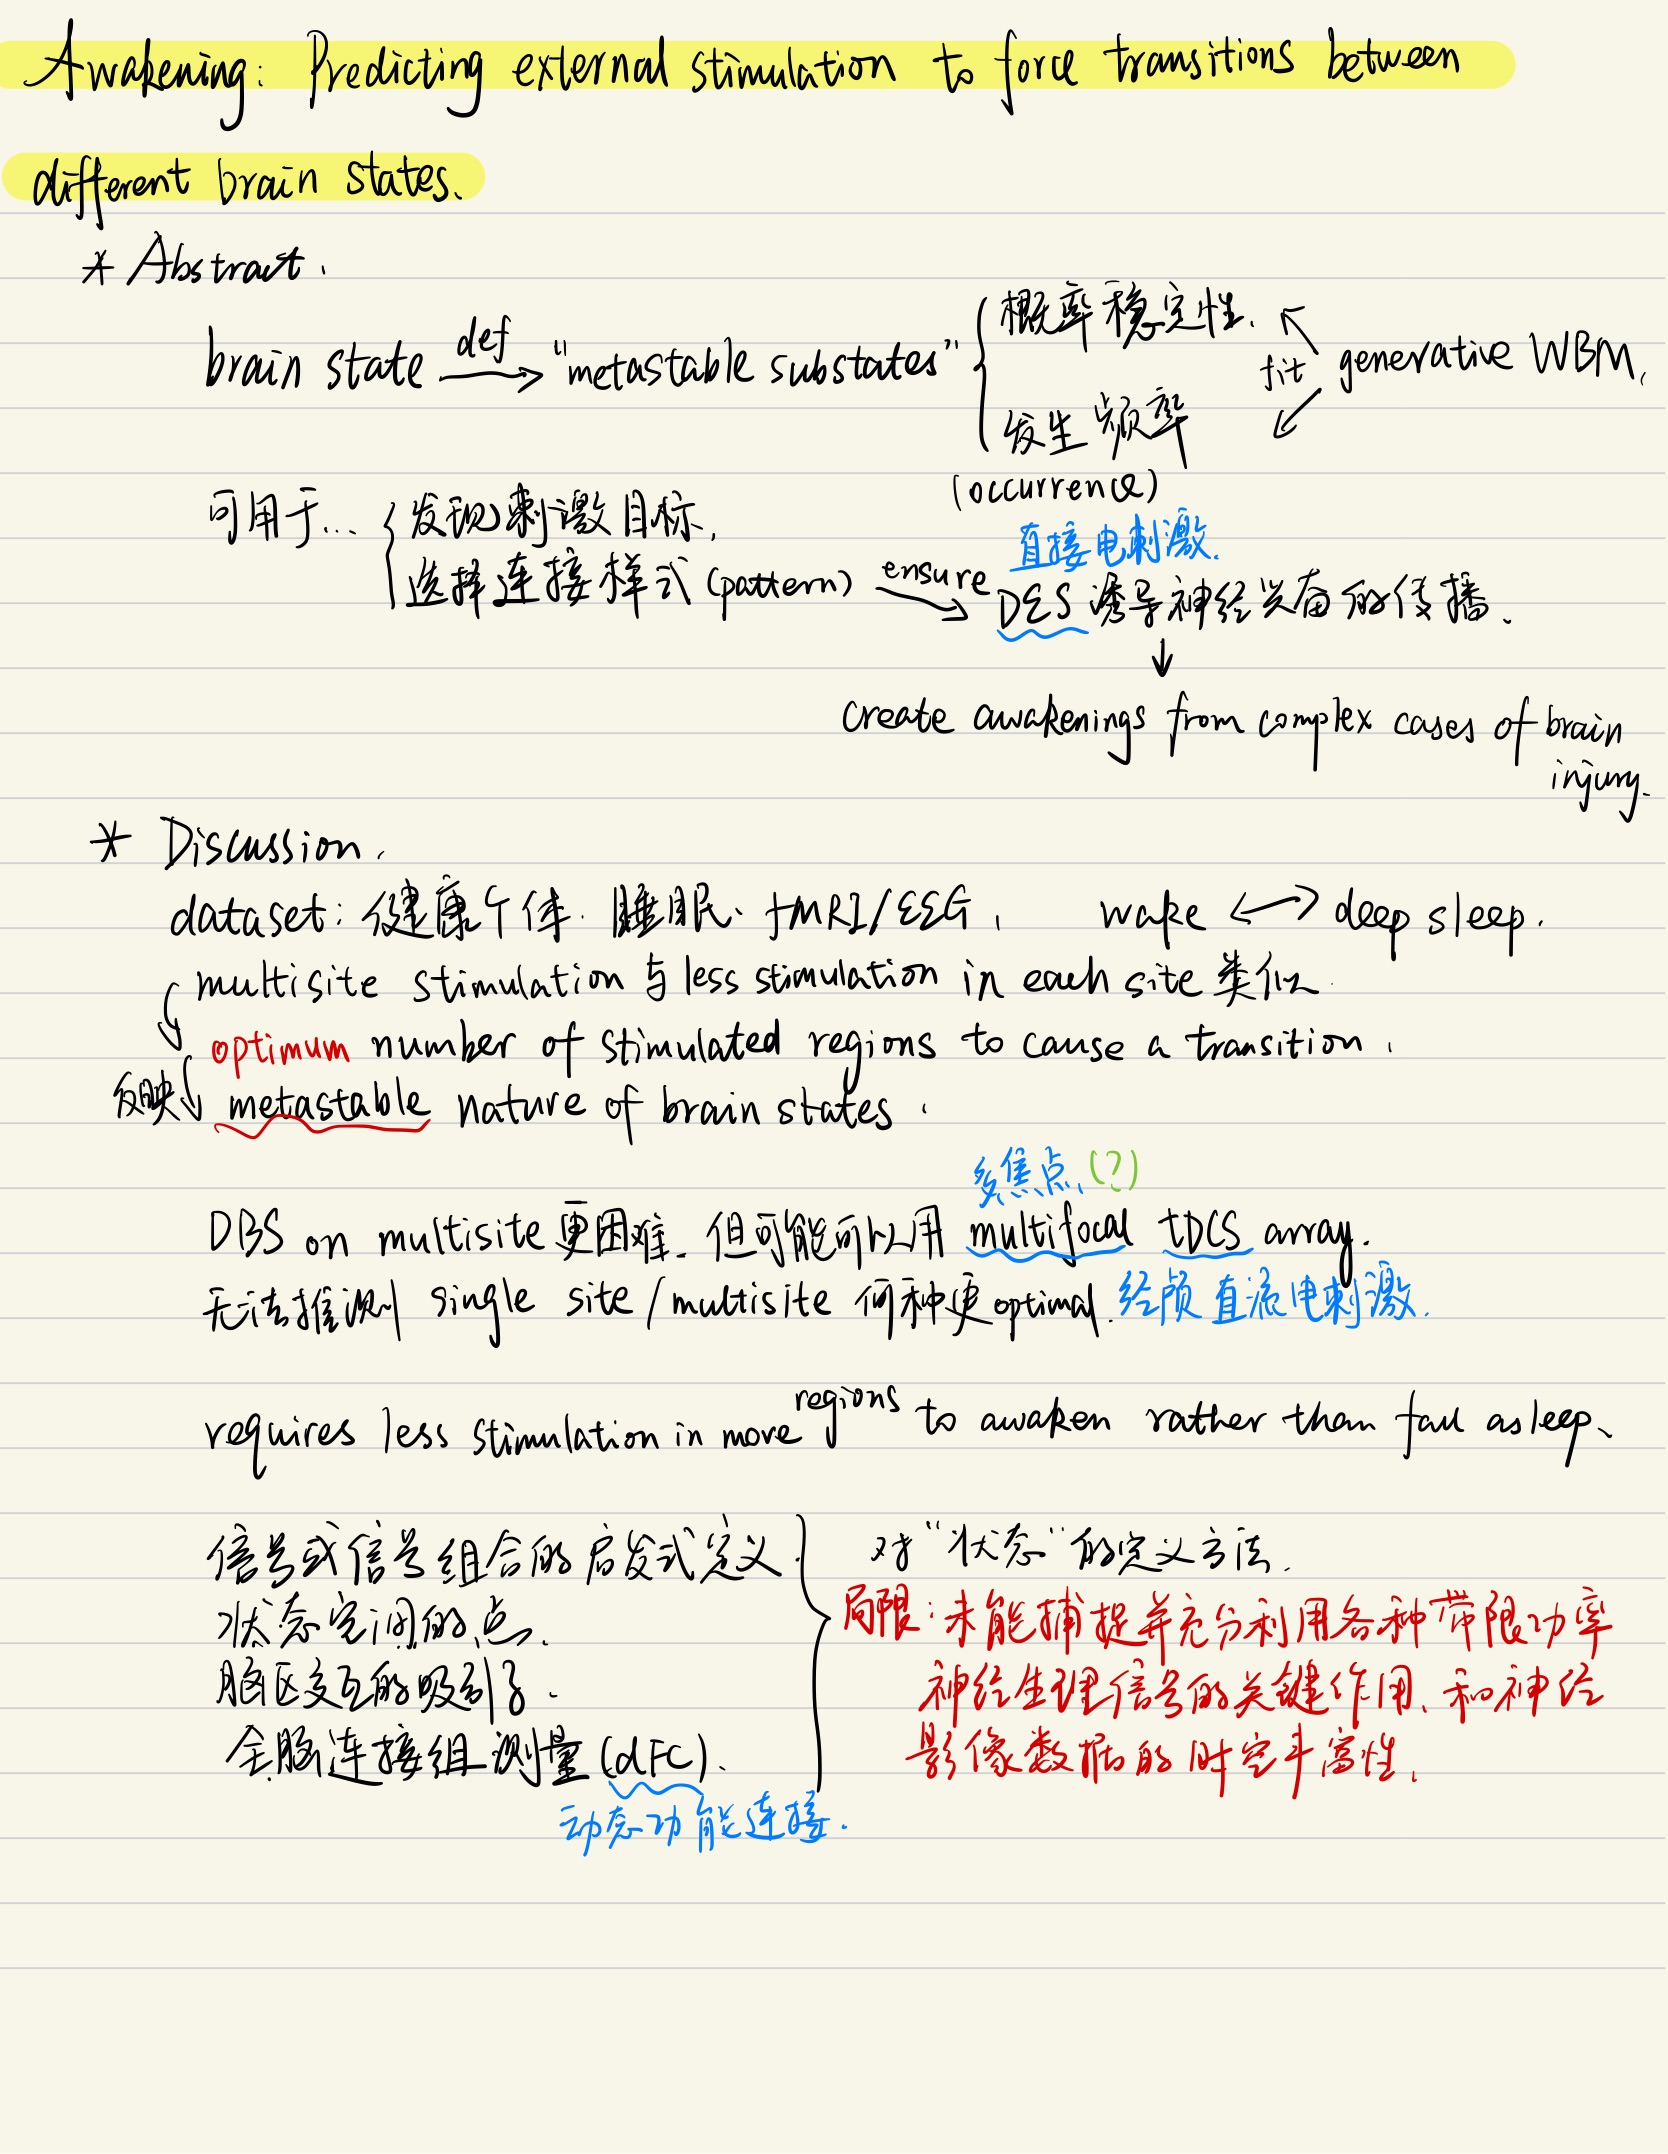 Awakening: Predicting external stimulation to force transitions between
different brain states.
* Abstract.
brain state def "metastable substates" 概率稳定性. fit generative WBM.
发生频率
(occurrence)
可用于... 发现刺激目标.
直接电刺激.
选择连接样式(pattern) ensure DES诱导神经兴奋的传播.
create awakenings from complex cases of brain
injury.
* Discussion.
dataset: 健康个体. 睡眠. fMRI/EEG, wake ↔ deep sleep.
multisite stimulation 与 less stimulation in each site 类似
optimum number of stimulated regions to cause a transition.
反映 metastable nature of brain states.
多焦点.(?)
DBS on multisite 更困难. 但可能可以用 multifocal tDCS array.
无法推测 single site/multisite 何种更optimal. 经颅直流电刺激.
requires less stimulation in more regions to awaken rather than fall asleep.
信号或信号组合的启发式定义. 对"状态"的定义方法.
状态空间的点. 局限: 未能捕捉并充分利用各种带限功率
脑区交互的吸引子. 神经生理信号的关键作用, 和神经
全脑连接组测量(dFC). 影像数据的时空丰富性.
动态功能连接.